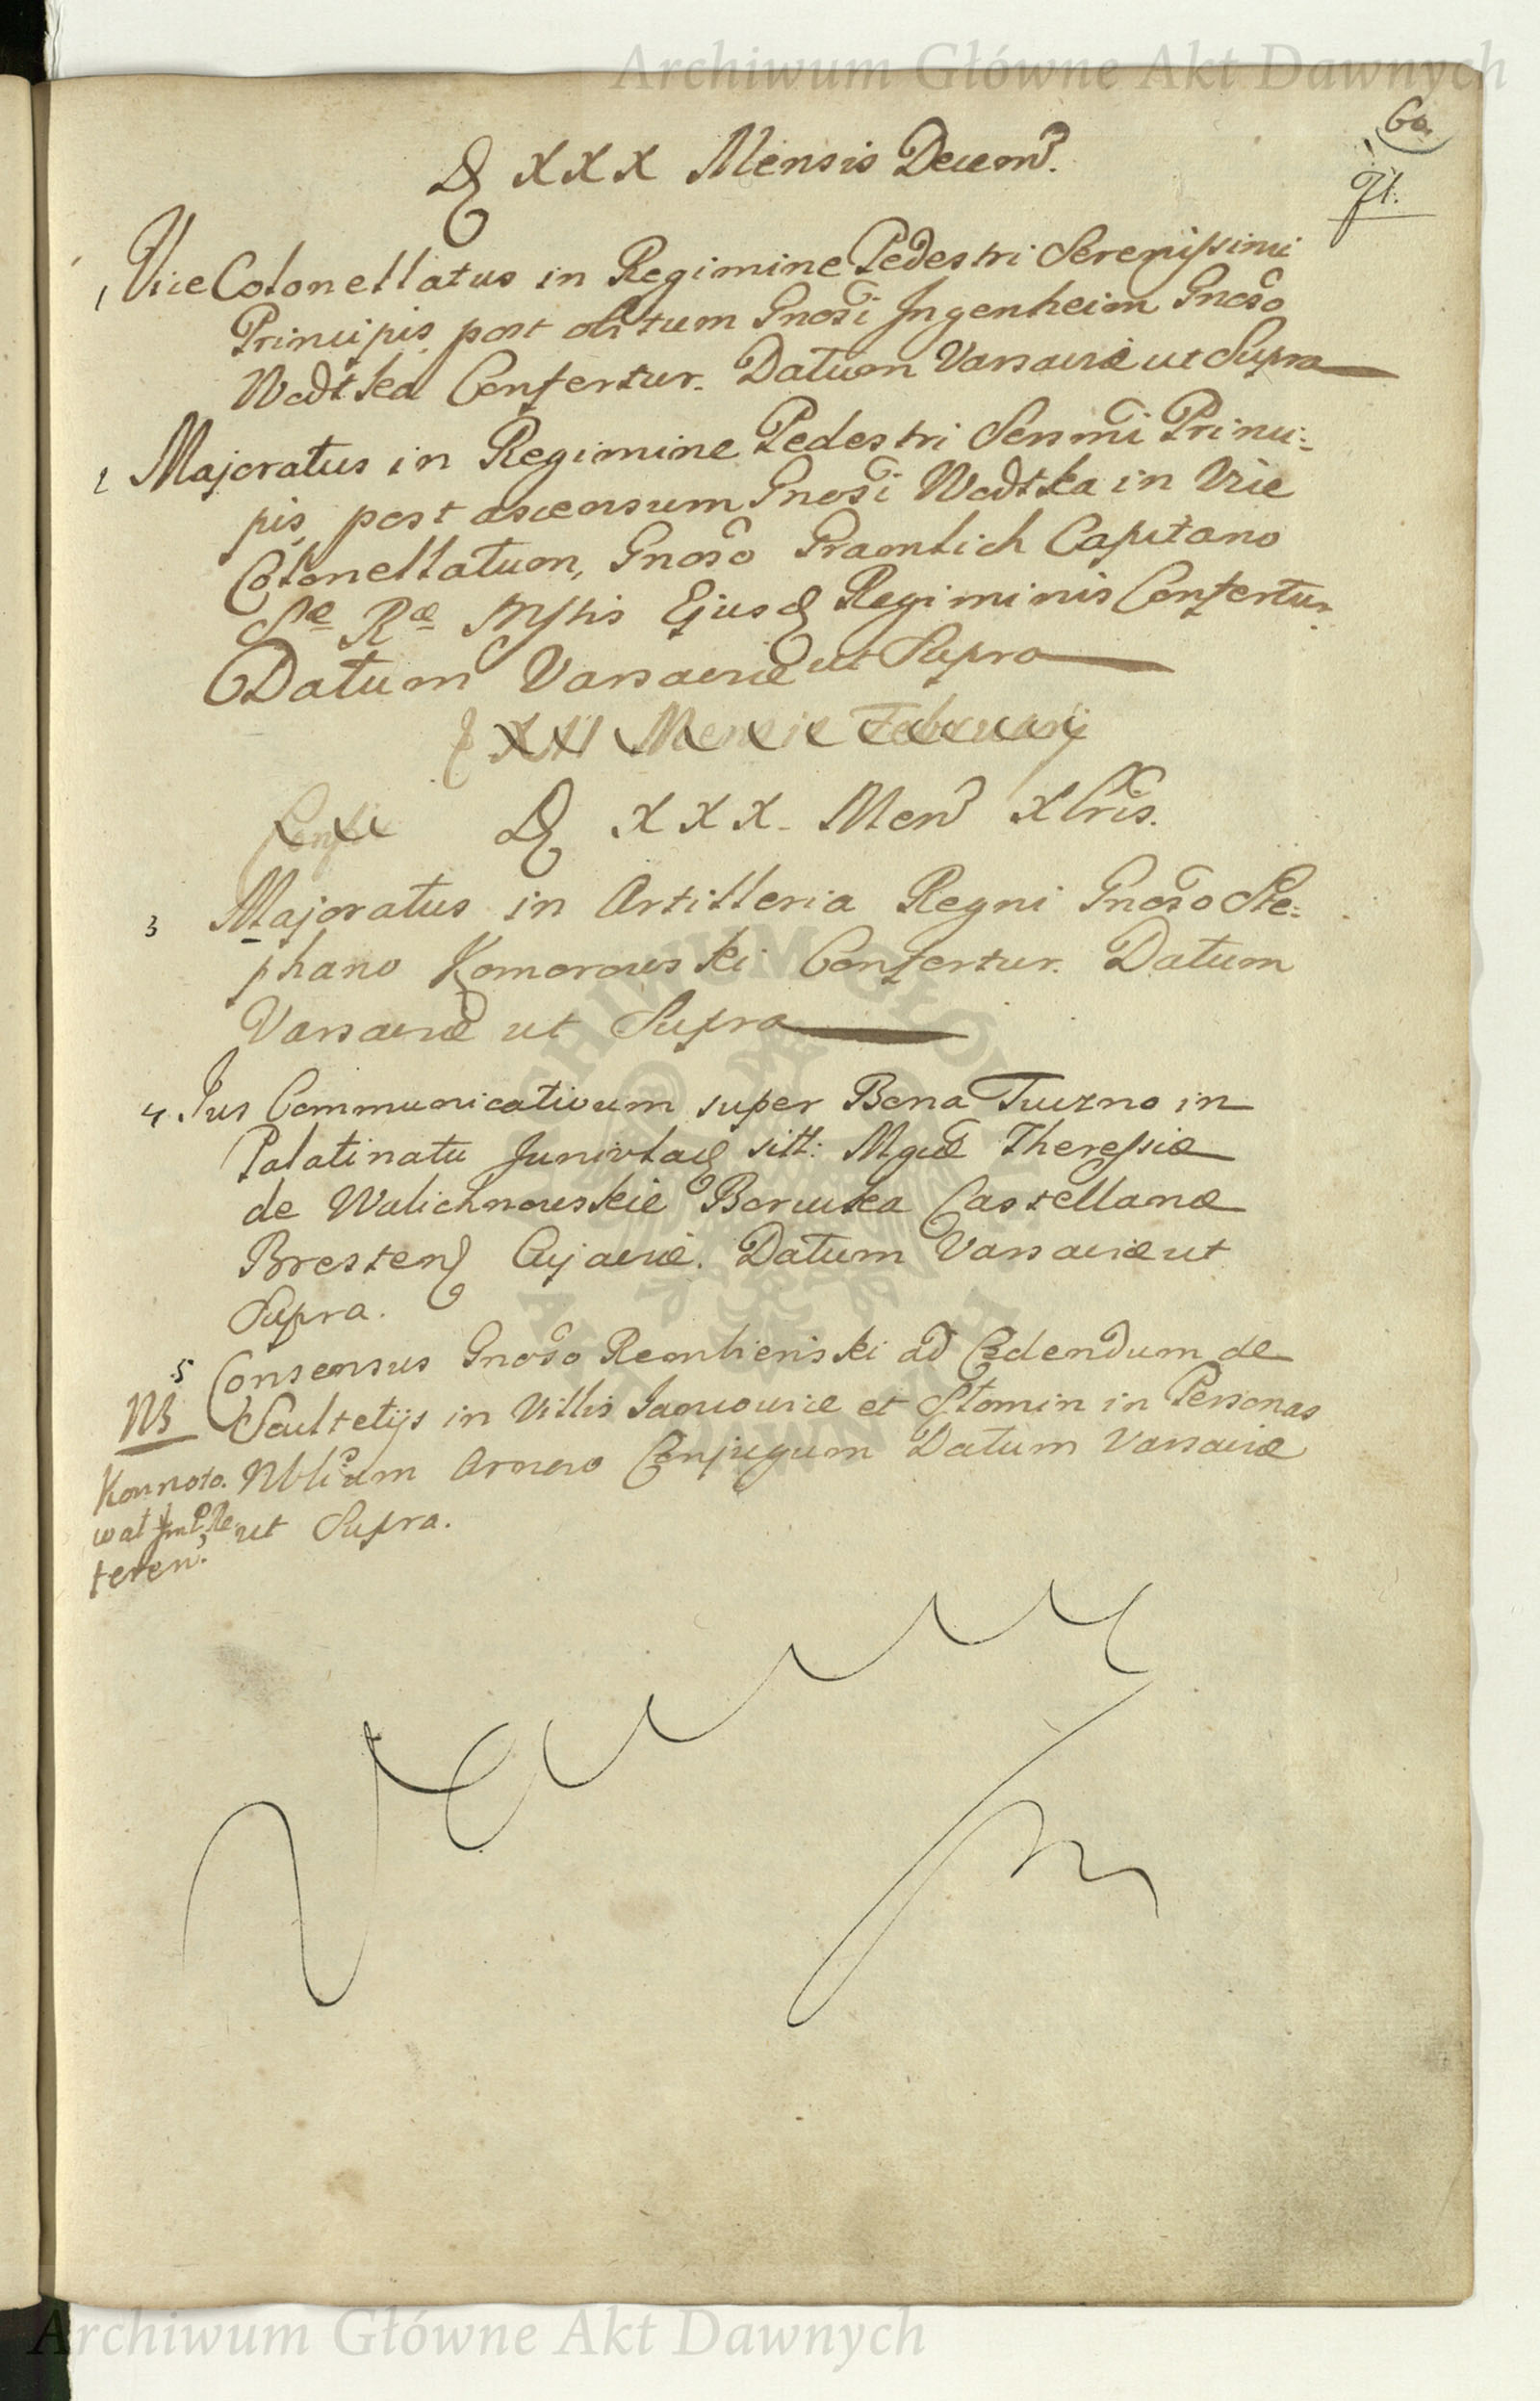 Archiwum Główne Akt Dawnych
60.
71.
D XXX Mensis Decem̃.
1, ViceColonellatus in Regimine Pedestri Serenissimi
Principis post obitum Gnosi Ingenheim Gnoso
Wodtka Confertur. Datum Varsaviæ ut Supra
2 Majoratus in Regimine Pedestri Sersmi Princi:
pis, post ascensum Gnosi Wodtka in Vice
Colonellatum, Gnoso Gramlich Capitano
Sæ Ræ Mstis Ejusq Regiminis Confertur.
Datum Varsaviæ ut Supra
XXI Mensis Februarij
D XXX. Men Xbris.
3 Majoratus in Artilleria Regni Gnoso Ste:
phano Komorowski Confertur. Datum
Varsaviæ ut Supra
4. Jus Communicativum super Bona Tuczno in
Palatinatu Junivlad sitt: Mgcæ Theressiæ
de Walichnowskie Borucka Castellanæ
Bresten Cujaviæ. Datum Varsaviæ ut
Supra.
5 Consensus Gnoso Rembieński ad Cedendum de
NB Scultetijs in Villis Jaxowicæ et Słomin in Personas
Konnoto. Nblium Conjugum Datum Varsaviæ
wał ut Supra.
Archiwum Główne Akt Dawnych